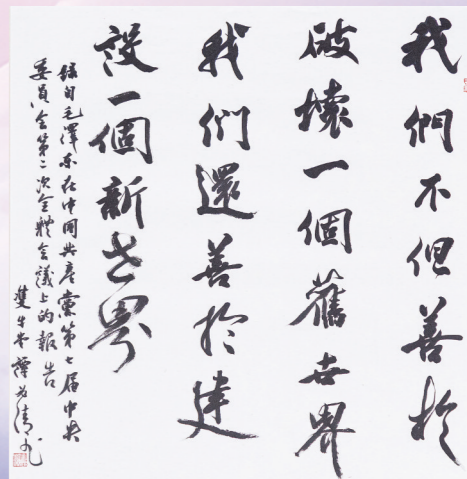 我們不但善於
破壞一個舊世界
我們還善於建
設一個新世界
錄自毛澤東在中國共產黨第七届中央
委員會第二次全體會議上的報告
雙牛